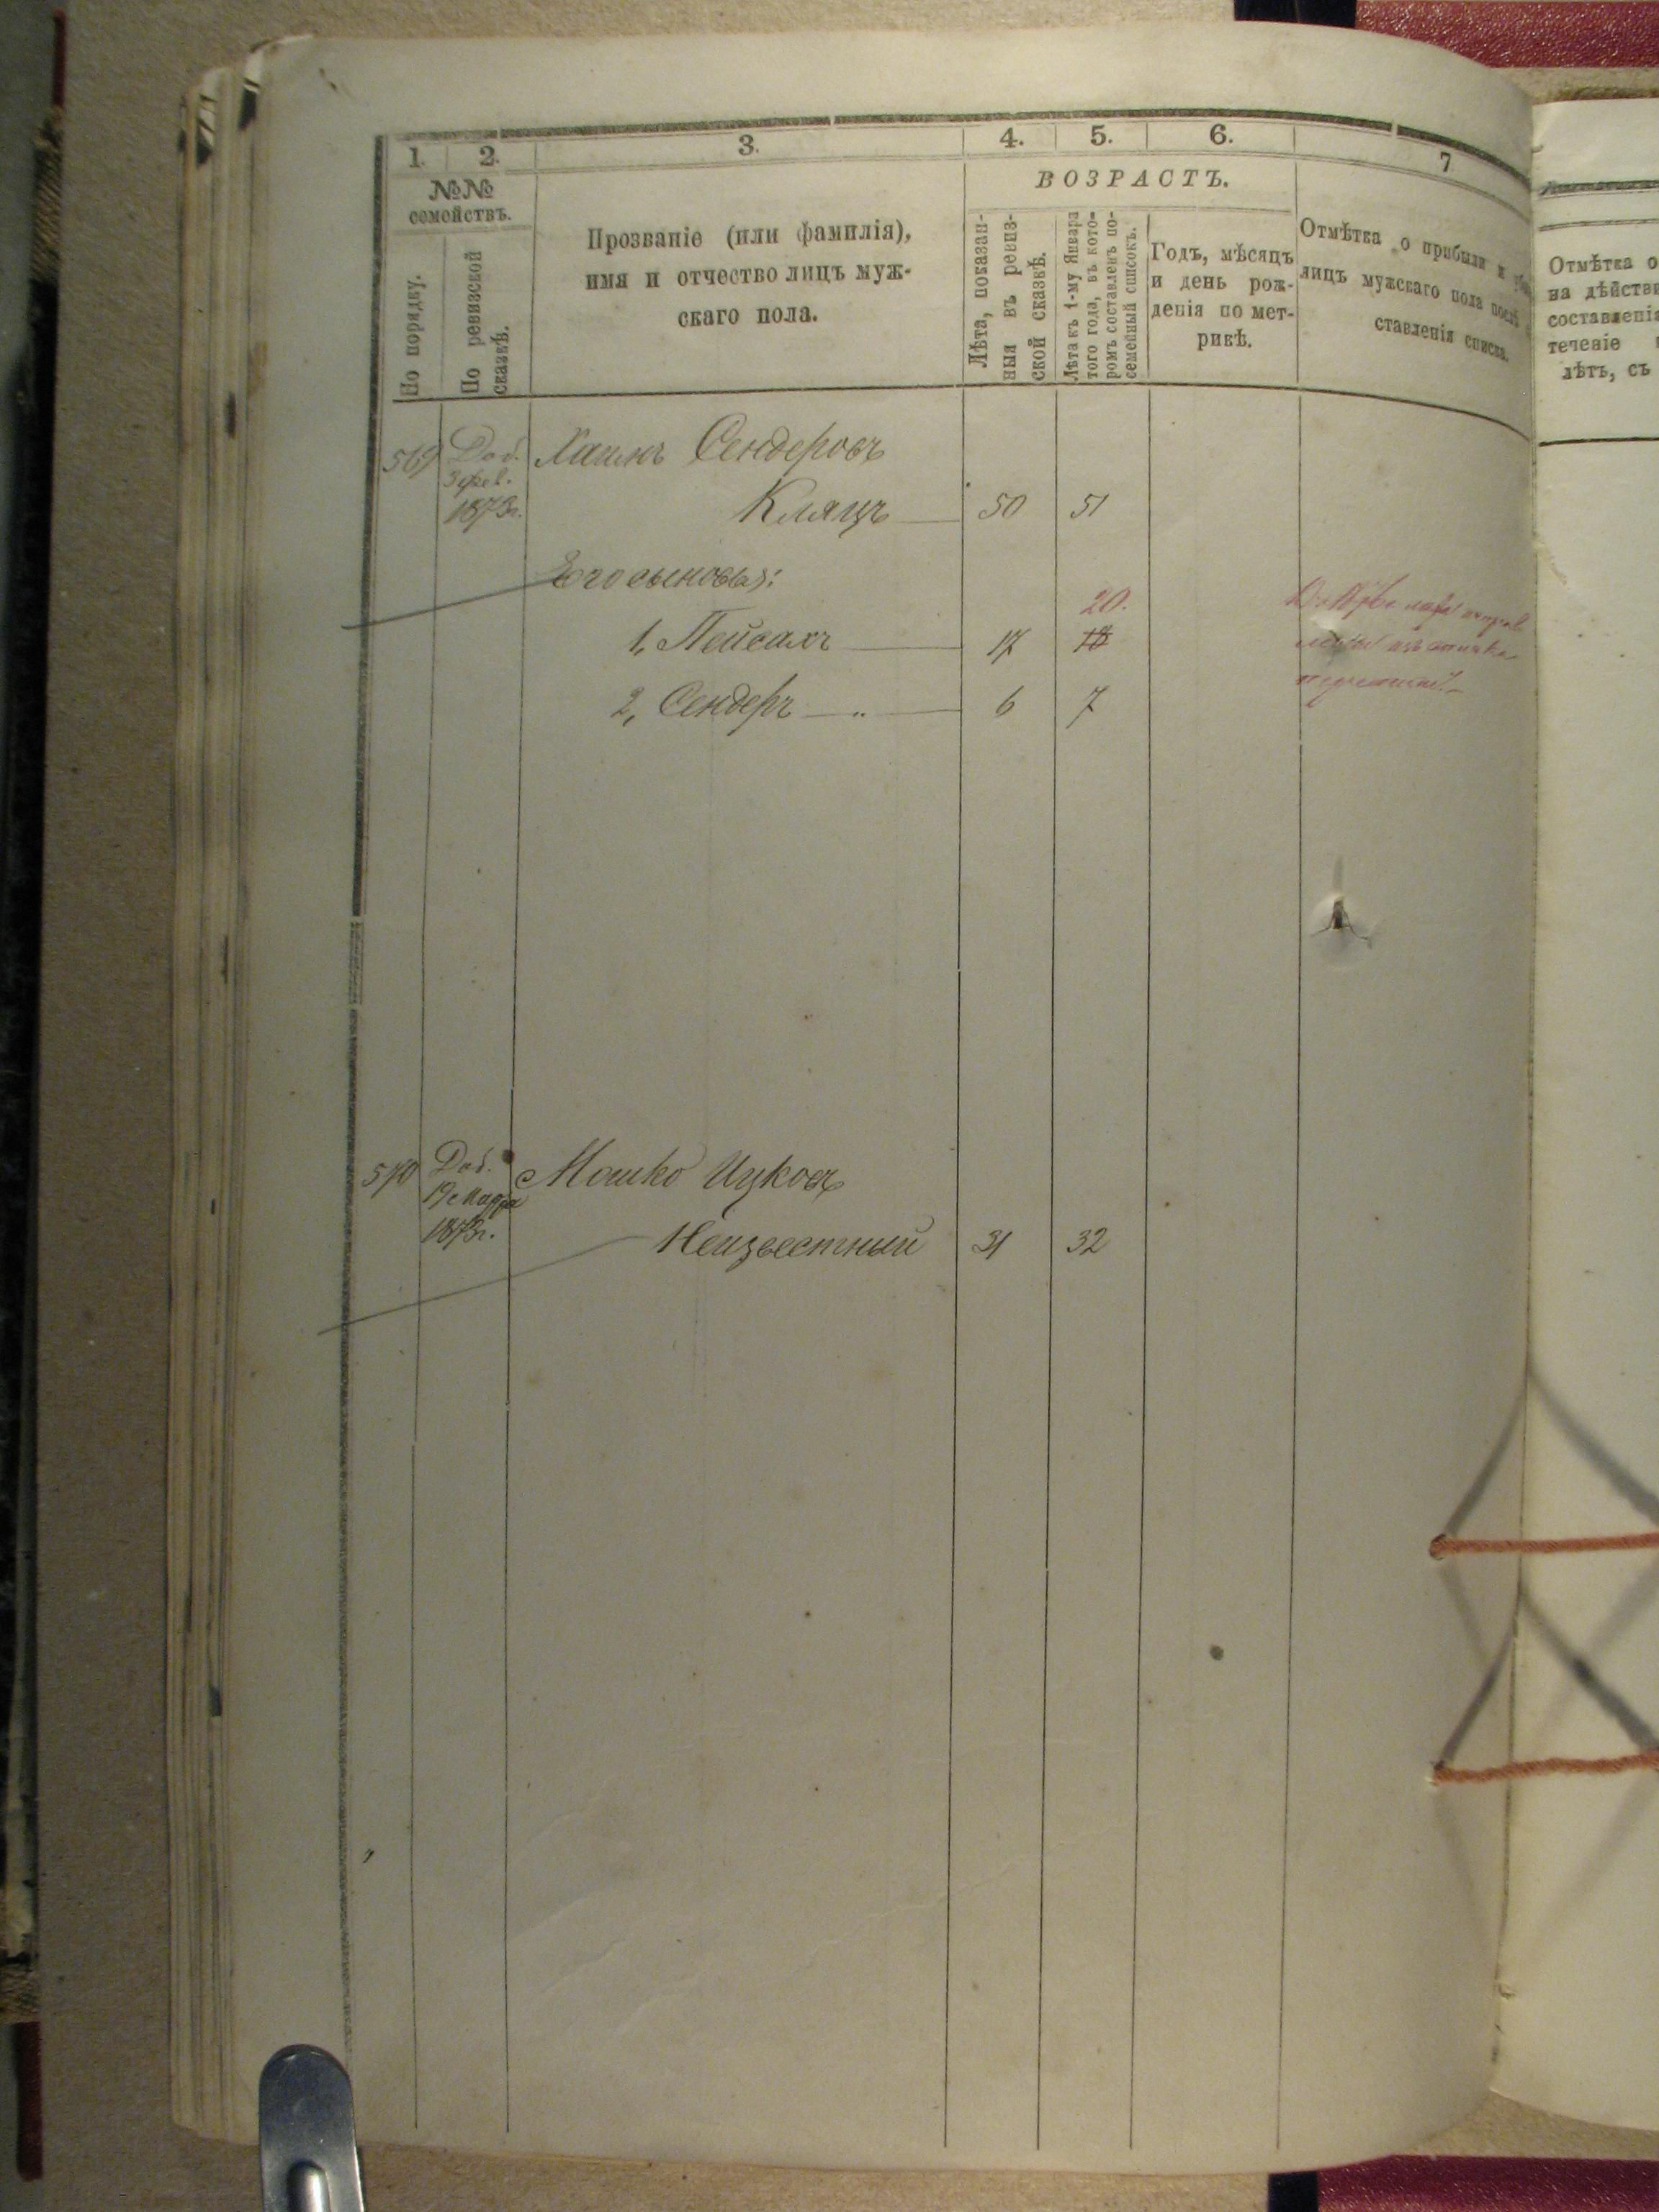 1. 2. 3. 4. 5. 6. 7
№№ семействъ.
По порядку.
По ревизской сказкѣ.
Прозваніе (или фамилія),
имя и отчество лицъ муж-
скаго пола.
ВОЗРАСТЪ.
Лѣта, показан-
ныя въ ревиз-
ской сказкѣ.
Лѣта къ 1-му Января
того года, въ кото-
ромъ составленъ по-
семейный списокъ.
Годъ, мѣсяцъ
и день рож-
денія по мет-
рикѣ.
Отмѣтка о прибыли и
лицъ мужскаго пола послѣ
ставленія списка.
Отмѣтка о
на дѣйстви
составленія
теченіе
лѣтъ, съ
569 Доб. Хаимъ Сендеровъ
3 фев.
1873г. Кляцъ 50 51
Его сыновья:
20.
1, Пейсахъ 17 18
2, Сендеръ 6 7
570 Доб. Мошко Ицковъ
19 Марта
1873г. Неизвестный 31 32